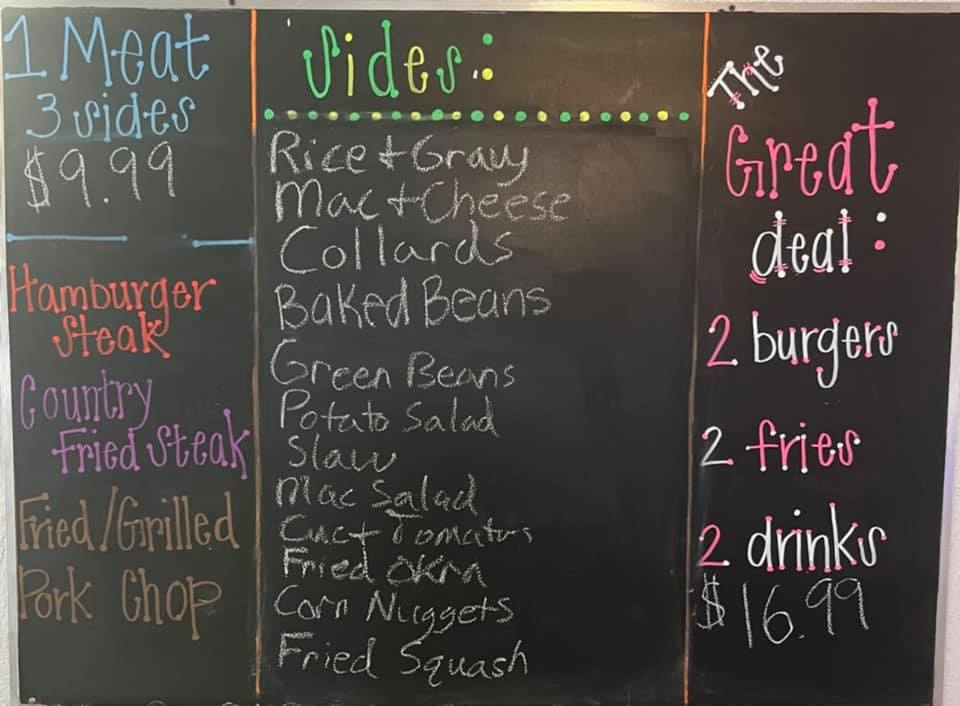 1 Meat
3 sides
$9.99
Hamburger
Steak
Country
Fried Steak
Fried/Grilled
Pork Chop
Sides:
Rice + Gravy
Mac + Cheese
Collards
Baked Beans
Green Beans
Potato Salad
Slaw
Mac Salad
Cuc + Tomatos
Fried Okra
Corn Nuggets
Fried Squash
The
Great
deal:
2 burgers
2 fries
2 drinks
$16.99